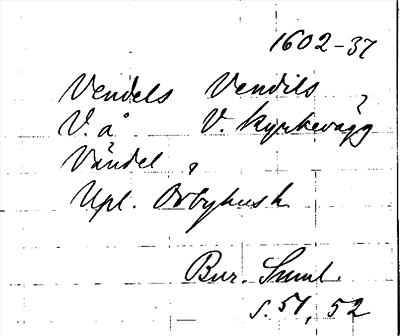 1602-37
Vendels Vendils,
V. å V. Kyrkevägg
Vändel,
Upl. Örbyhus h
Bur. Suml.
s. 51, 52